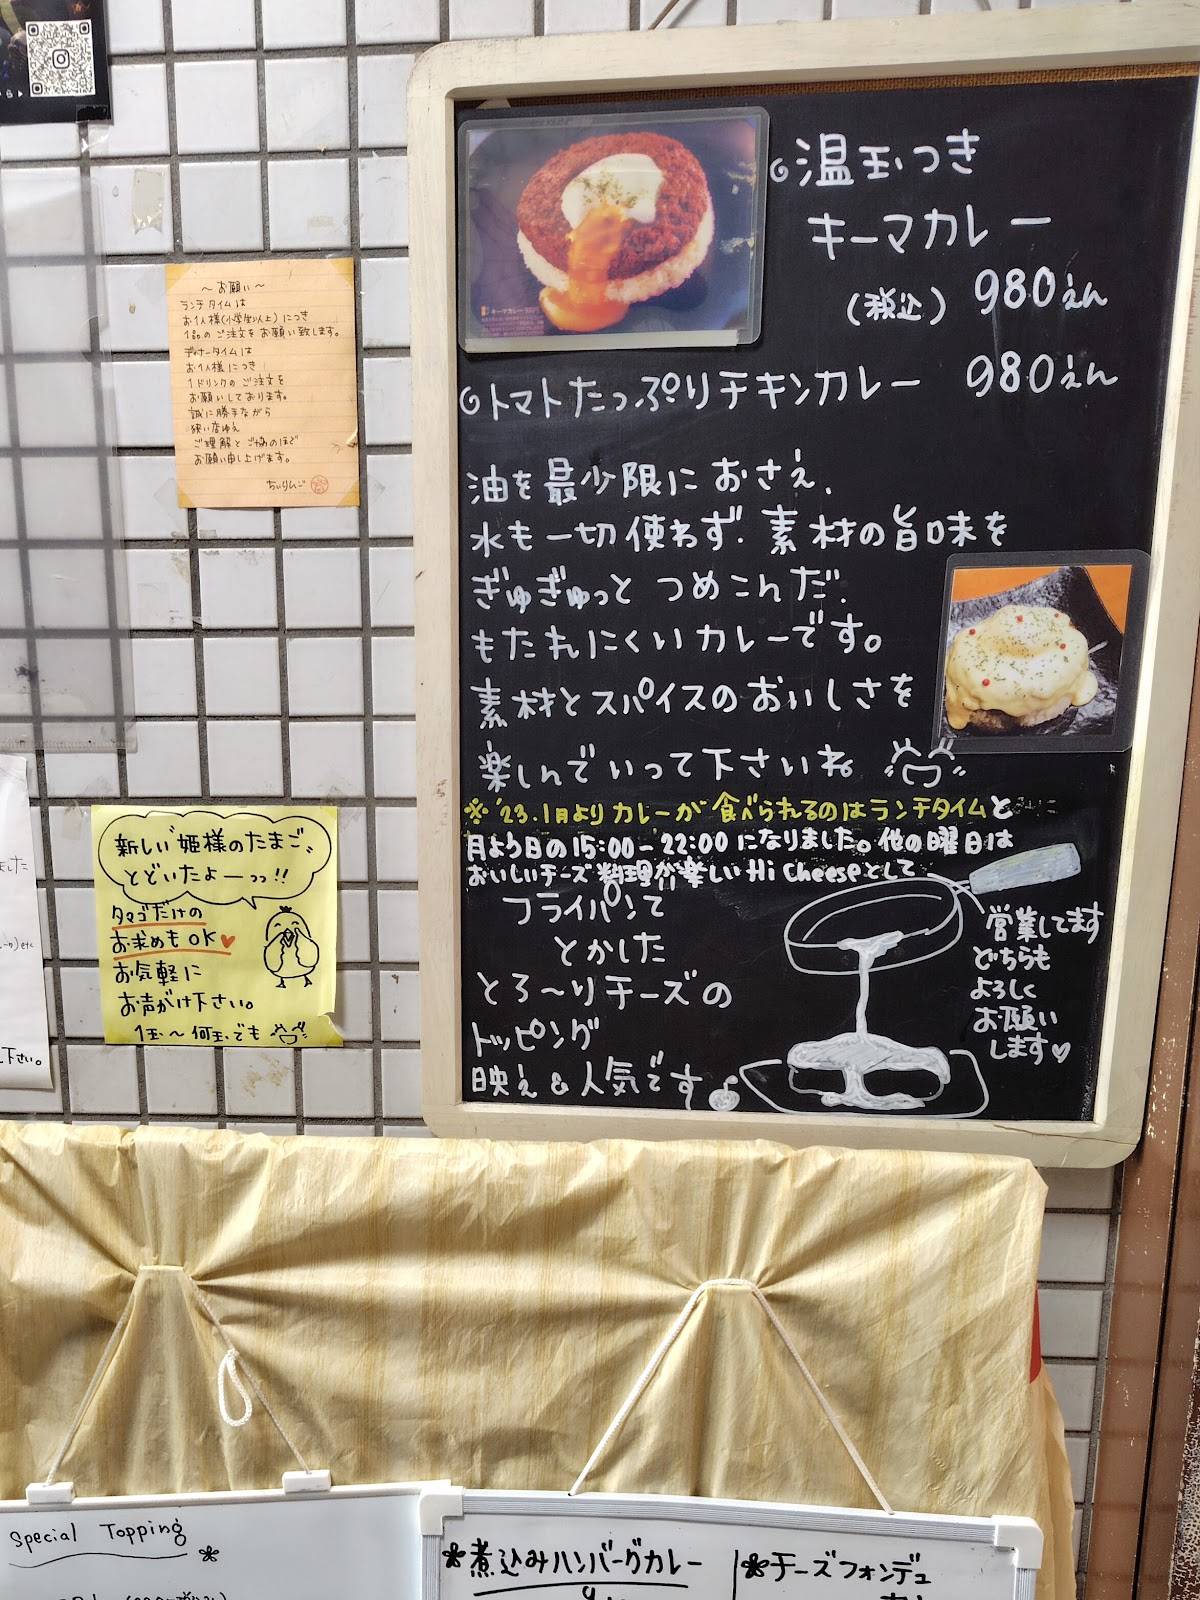 ～お願い～
ランチタイムは
お1人様(小学生以上)につき
1品のご注文をお願い致します。
ディナータイムは
お1人様につき
1ドリンクのご注文を
お願いしております。
誠に勝手ながら
狭い店ゆえ
ご理解とご協力のほど
お願い申し上げます。
ちいりんご
新しい姫様のたまご、
とどいたよーっっ!!
タマゴだけの
お求めもOK♥
お気軽に
お声がけ下さい。
1玉～何玉でも
ました
etc
下さい。
温玉つき
キーマカレー
(税込) 980えん
トマトたっぷりチキンカレー 980えん
キーマカレー
油を最少限におさえ、
水も一切使わず、素材の旨味を
ぎゅぎゅっと つめこんだ、
もたれにくいカレーです。
素材とスパイスのおいしさを
楽しんでいって下さいね
※'23.1月よりカレーが食べられるのはランチタイムと
月よう日の15:00-22:00になりました。他の曜日は
おいしいチーズ料理が楽しいHi Cheeseとして
営業してます
どちらも
よろしく
お願い
します♡
フライパンで
とかした
とろ～りチーズの
トッピング
映え&人気です
Special Topping
*煮込みハンバーグカレー
*チーズフォンデュ